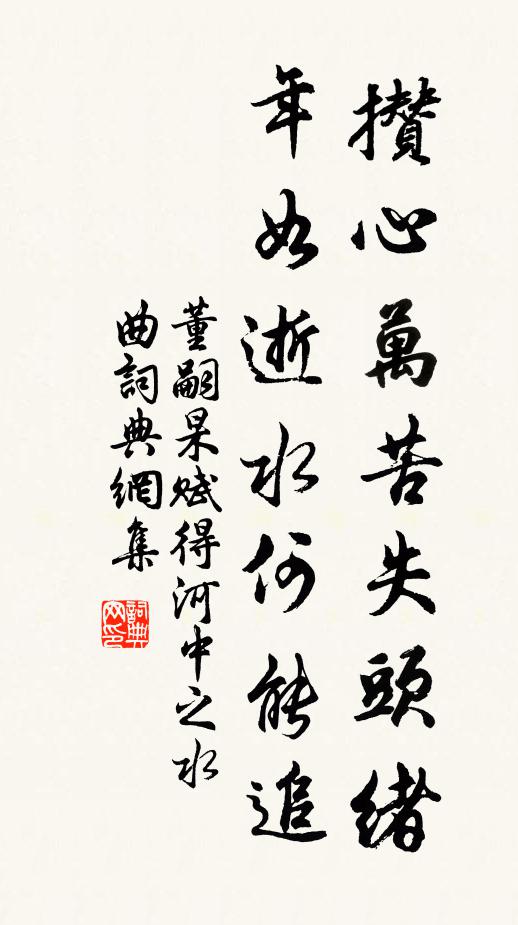 攢心萬苦失頭緒
年如逝水何能追
董嗣杲賦得河中之水
曲詞典網集
詞典网印